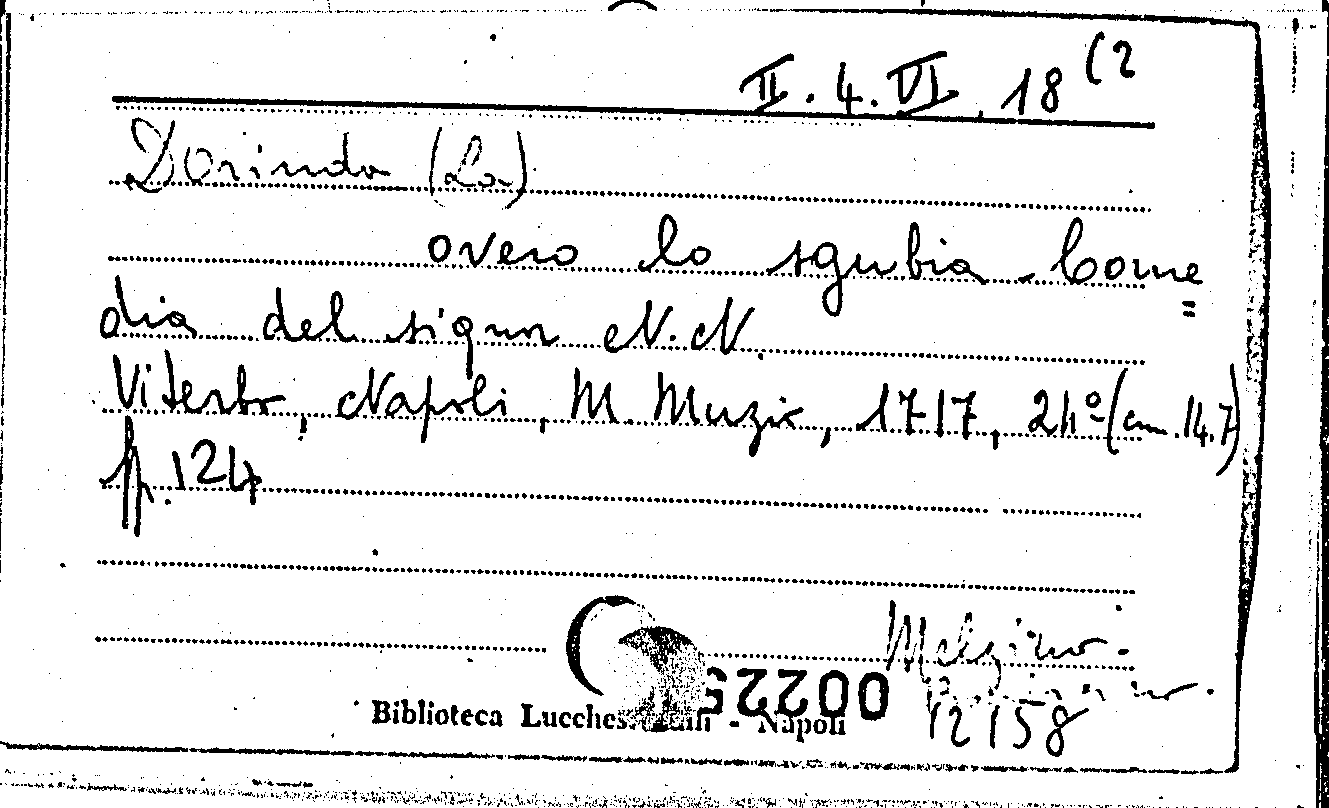 II. 4. VI. 18 (2
Dorinda (La)
overo lo sgubia - Come=
dia del signor N.N.
Viterbo, Napoli, M. Muzio, 1717, 24º (cm. 14.7)
pp. 124
Melzi
00225
Biblioteca Lucchesi - Napoli
12158